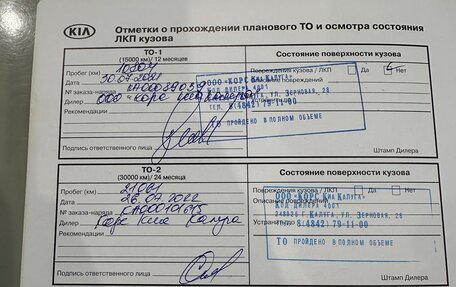 KIA
Отметки о прохождении планового ТО и осмотра состояния
ЛКП кузова
ТО-1
(15000 км) / 12 месяцев
Состояние поверхности кузова
Пробег (км)
Повреждения кузова / ЛКП Да Нет
30.07.2021
№ заказа-наряда
Дилер ООО «Корс Киа Калуга»
Рекомендации
ООО «КОРС Киа Калуга»
Код дилера 4001
ул. Зерновая, 28
тел. 8(4842) 79-11-00
ТО пройдено в полном объеме
Подпись ответственного лица
Штамп Дилера
ТО-2
(30000 км) / 24 месяца
Состояние поверхности кузова
Пробег (км) 21061
Повреждения кузова / ЛКП Да Нет
26.07.2022
№ заказа-наряда
Описание повреждений
Дилер Корс Киа Калуга
Устранено
Рекомендации
ООО «КОРС Киа Калуга»
Код дилера 4001
г. Калуга, ул. Зерновая, 28
8(4842) 79-11-00
ТО пройдено в полном объеме
Подпись ответственного лица
Штамп Дилера